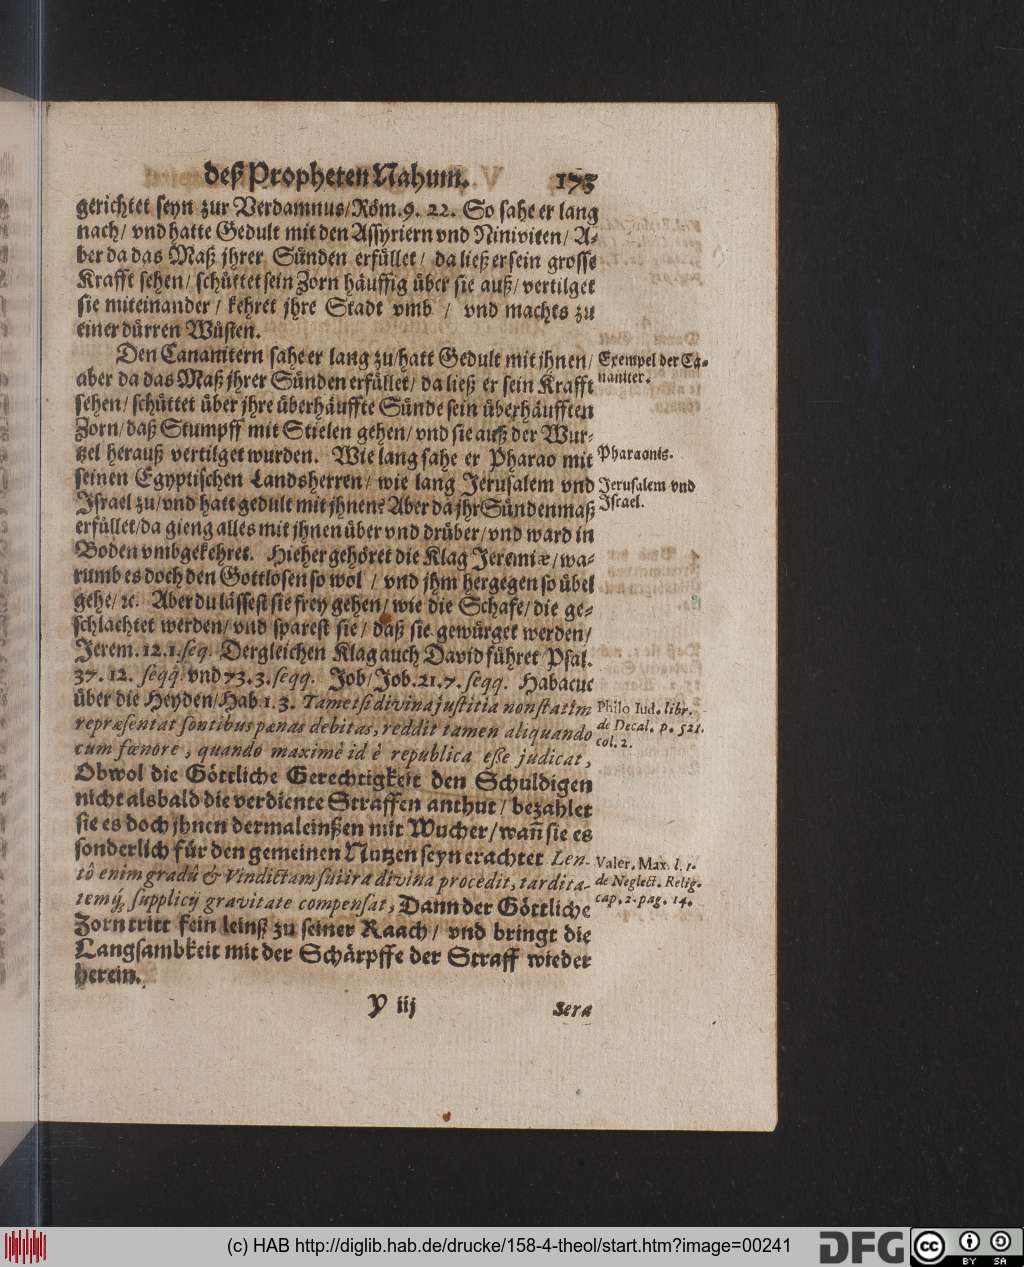 deß Propheten Nahum. 175
gerichtet seyn zur Verdamnus/Röm.9. 22. So sahe er lang
nach/ vnd hatte Gedult mit den Assyriern vnd Niniviten/ A-
ber da das Maß jhrer Sünden erfüllet/ da ließ er sein grosse
Krafft sehen/ schüttet sein Zorn häuffig über sie auß/ vertilget
sie miteinander/ kehret jhre Stadt vmb / vnd machts zu
einer dürren Wüsten.
Den Cananitern sahe er lang zu/hatt Gedult mit jhnen/
Exempel der Ca-
naniter.
aber da das Maß jhrer Sünden erfüllet/ da ließ er sein Krafft
sehen/ schüttet über jhre überhäuffte Sünde sein überhäufften
Zorn/ daß Stumpff mit Stielen gehen/ vnd sie auß der Wur-
tzel herauß vertilget wurden. Wie lang sahe er Pharao mit
Pharaonis.
seinen Egyptischen Landsherren/ wie lang Jerusalem vnd
Jerusalem vnd
Israel.
Israel zu/vnd hatt gedult mit jhnen? Aber da jhr Sündenmaß
erfüllet/da gieng alles mit jhnen über vnd drüber/vnd ward in
Boden vmbgekehret. Hieher gehöret die Klag Jeremiæ/wa-
rumb es doch den Gottlosen so wol / vnd jhm hergegen so übel
gehe/ ꝛc. Aber du lässest sie frey gehen/ wie die Schafe/ die ge-
schlachtet werden/ vnd sparest sie/ daß sie gewürget werden/
Jerem. 12.1. seq. Dergleichen Klag auch David führet Psal.
37. 12. seqq. vnd 73. 3. seqq. Job/ Job. 21. 7. seqq. Habacuc
über die Heyden/Hab. 1. 3. Tametsi divina justitia non statim
Philo Iud. libr.
de Decal. p. 521.
col. 2.
repræsentat sontibus pœnas debitas, reddit tamen aliquando
cum fœnore, quando maximè id è republica esse judicat,
Obwol die Göttliche Gerechtigkeit den Schuldigen
nicht alsbald die verdiente Straffen anthut/ bezahlet
sie es doch jhnen dermaleinßen mit Wucher/wañ sie es
sonderlich für den gemeinen Nutzen seyn erachtet Len-
Valer. Max. l. 1.
de Neglect. Relig.
cap. 2. pag. 14.
tô enim gradû & Vindictam sui ira divina procedit, tardita-
temq́; supplicij gravitate compensat, Dann der Göttliche
Zorn tritt fein leinß zu seiner Raach/ vnd bringt die
Langsambkeit mit der Schärpffe der Straff wieder
herein.
Y iij Sera
(c) HAB http://diglib.hab.de/drucke/158-4-theol/start.htm?image=00241
DFG
cc BY SA